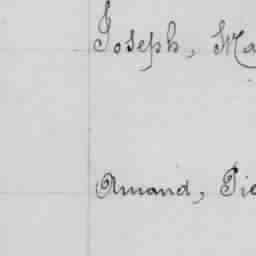 Joseph, Ma
Amand, Pie